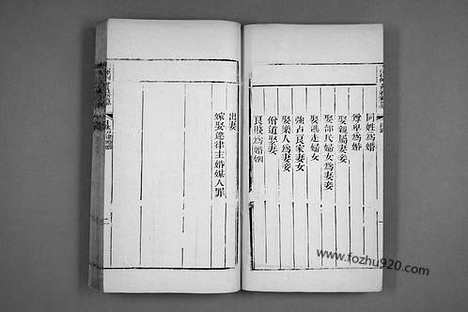 同姓爲婚
尊卑爲婚
娶親屬妻妾
娶部民婦女爲妻妾
娶逃走婦女
強占良家妻女
娶樂人爲妻妾
僧道娶妻
良賤爲婚姻
出妻
嫁娶違律主婚媒人罪
www.fozhu920.com